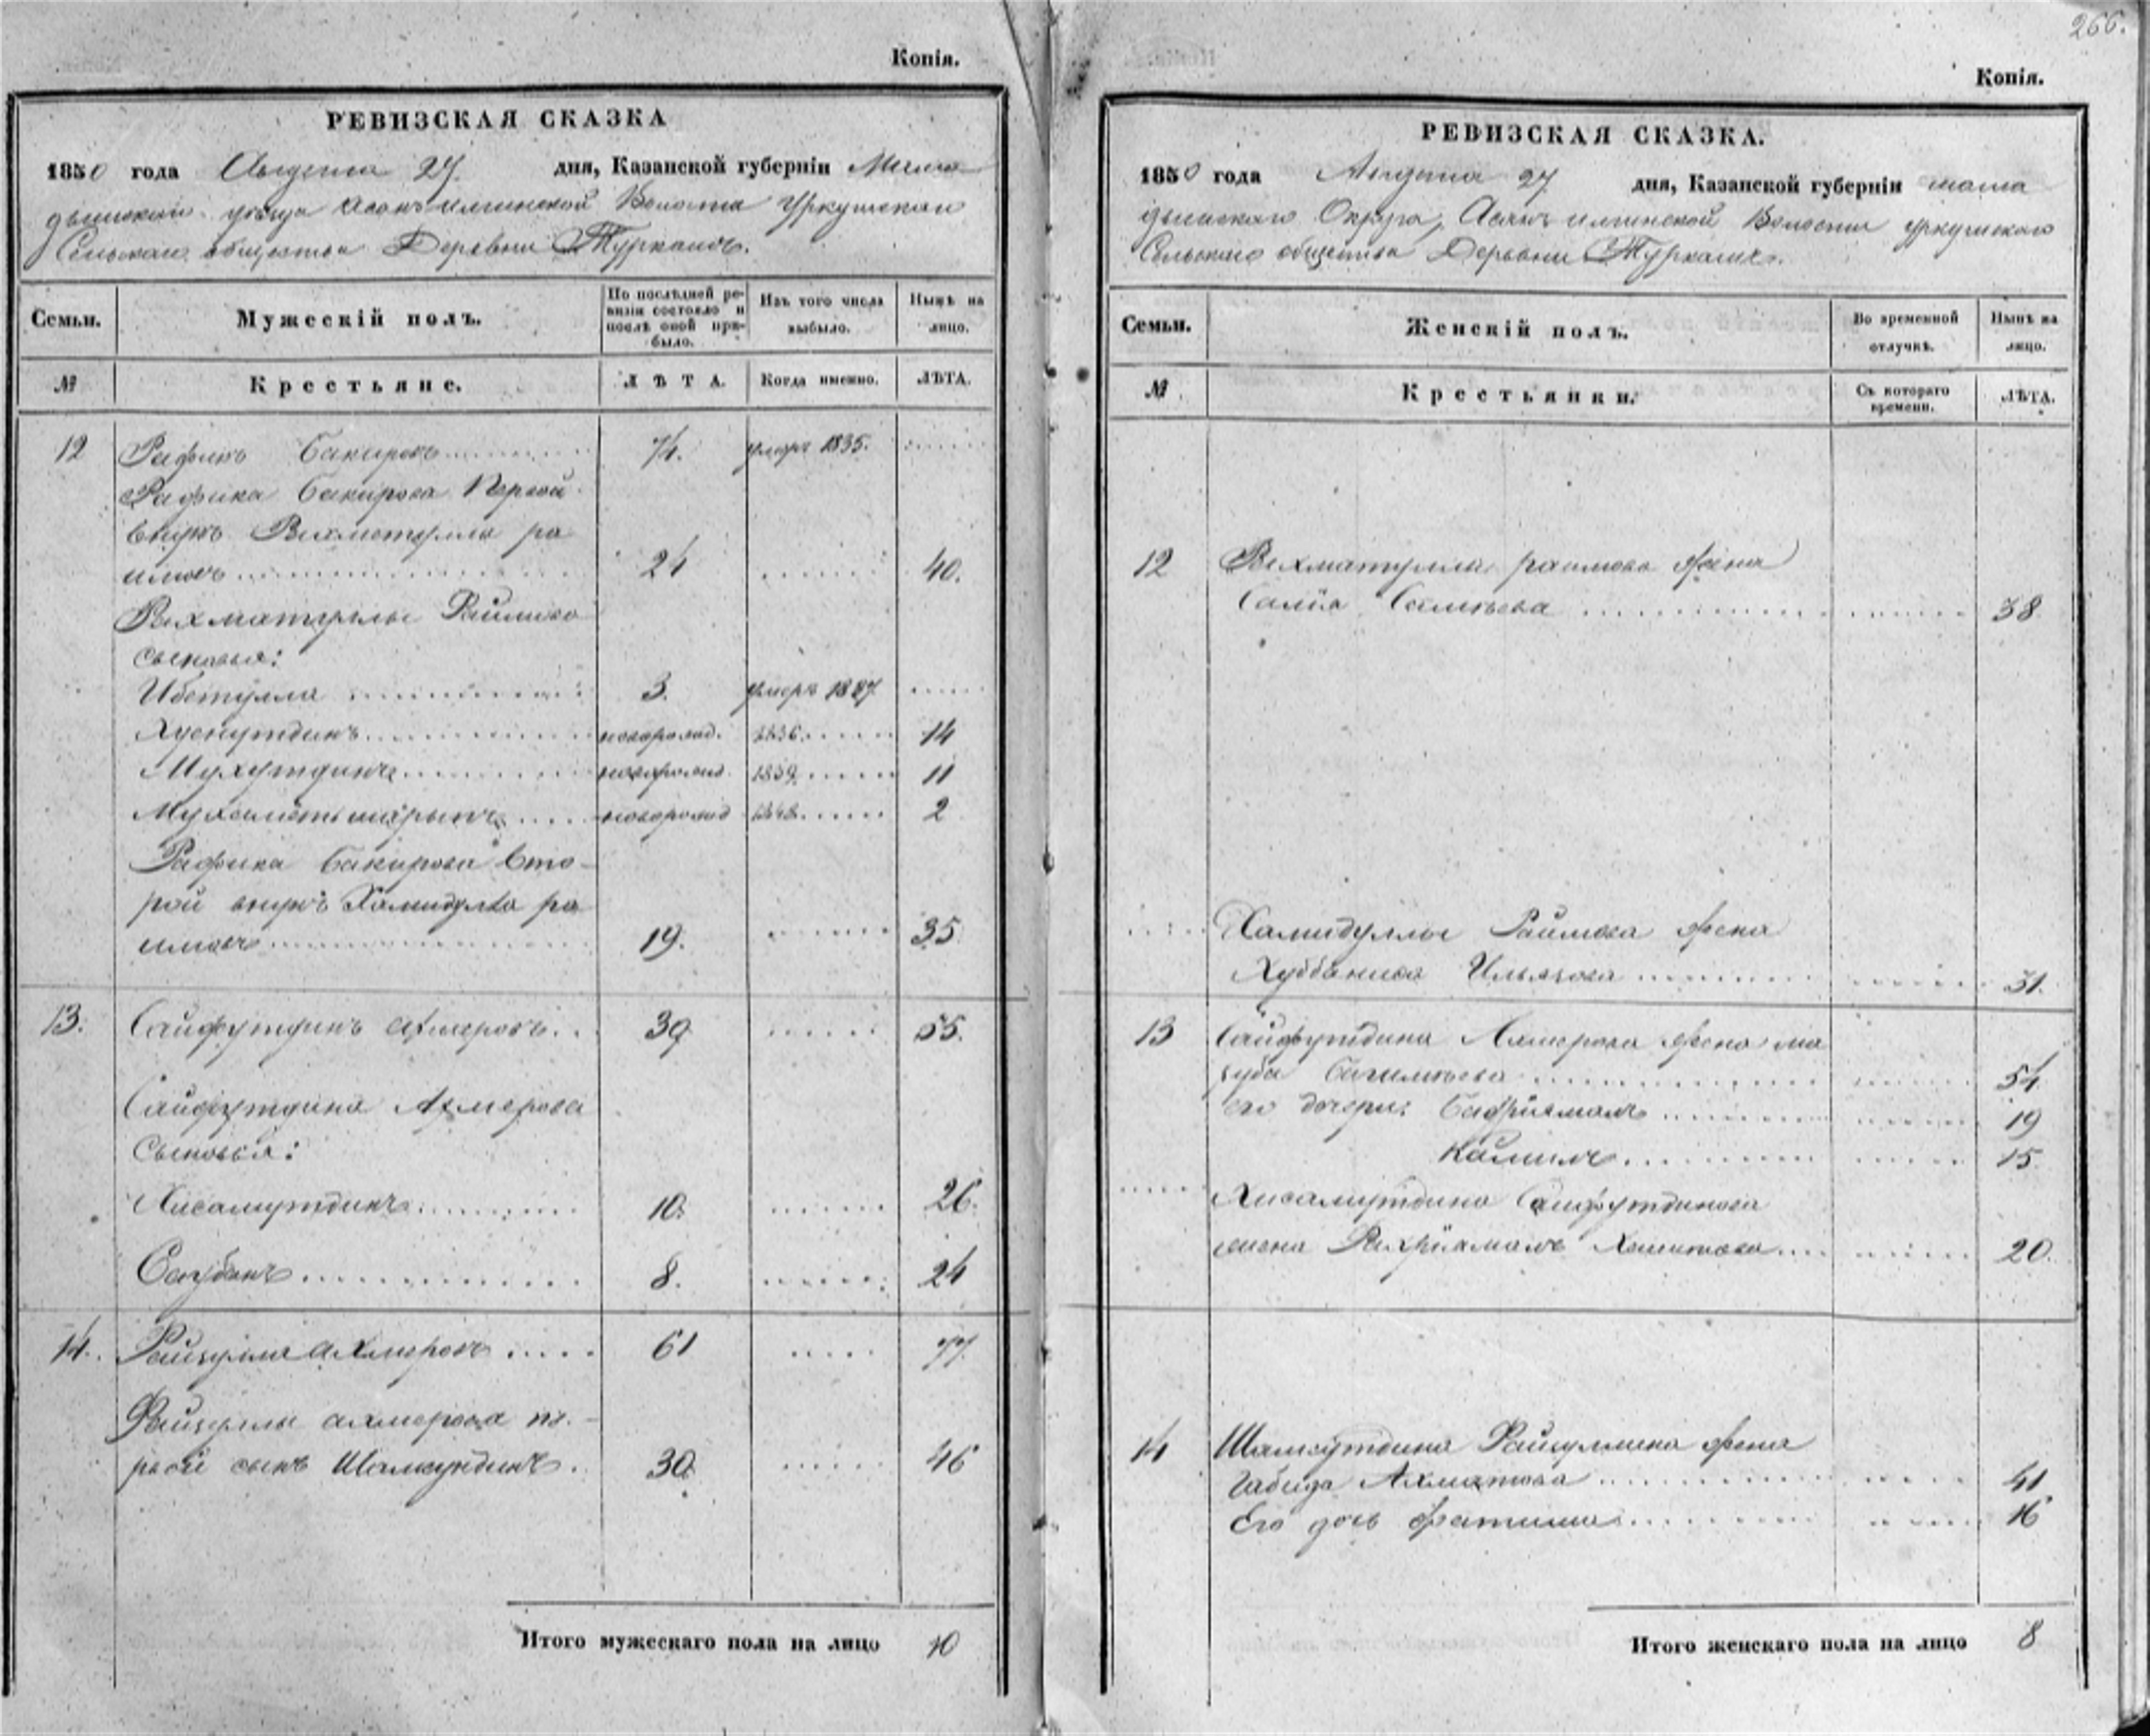 Копія.
РЕВИЗСКАЯ СКАЗКА
1850 года Августа 27. дня, Казанской губерніи Мама
дышскаго уѣзда Асанъ илгинской Волости Уркушскаго
Сельскаго общества Деревни Туркашъ.
Семьи. Мужескій полъ. По послѣдней ре-
визіи состояло и
послѣ оной при-
было. Изъ того числа
выбыло. Нынѣ на
лицо.
№ Крестьяне. ЛѢТА. Когда именно. ЛѢТА.
12 Рафикъ Бакировъ 74. умеръ 1835.
Рафика Бакирова Первой
внукъ Рахметулла ра
имовъ 24 40.
Рахматуллы Раимова
сыновья:
Ибетулла 3. умеръ 1837
Хуснутдинъ новорожд. 1836. 14
Мухутдинъ новорожд. 1839. 11
новорожд 1848. 2
Рафика Бакирова Вто-
рой внукъ Хамидулла ра
имовъ 19. 35
13. Сайфутдинъ Ахмеровъ. 39 55.
Сайфутдина Ахмерова
Сыновья:
Хисамутдинъ 10. 26.
8. 24
14. Файзулла ахмеровъ 61 77.
Файзуллы ахмерова пе-
рвой сынъ Шамсутдинъ. 30 46
Итого мужескаго пола на лицо 10
266.
Копія.
РЕВИЗСКАЯ СКАЗКА.
1850 года Августа 27 дня, Казанской губерніи мама
дышскаго Округа, Асанъ илгинской Волости уркушскаго
Сельскаго общества Деревни Туркашъ.
Семьи. Женскій полъ. Во временной
отлучкѣ. Нынѣ на
лицо.
№ Крестьянки. Съ котораго
времени. ЛѢТА.
12 Рахматуллы раимова жена
Салія 38
Хамидуллы Раимова жена
Ильясова 31.
13 Сайфутдина Ахмерова жена ма
54
его дочери: Бадриямалъ 19
Камилъ 15
Хисамутдина Сайфутдинова
жена 20.
14 Шамсутдина Файзуллина жена
Габида Ахматова 41
Его дочь Фатима 16
Итого женскаго пола на лицо 8